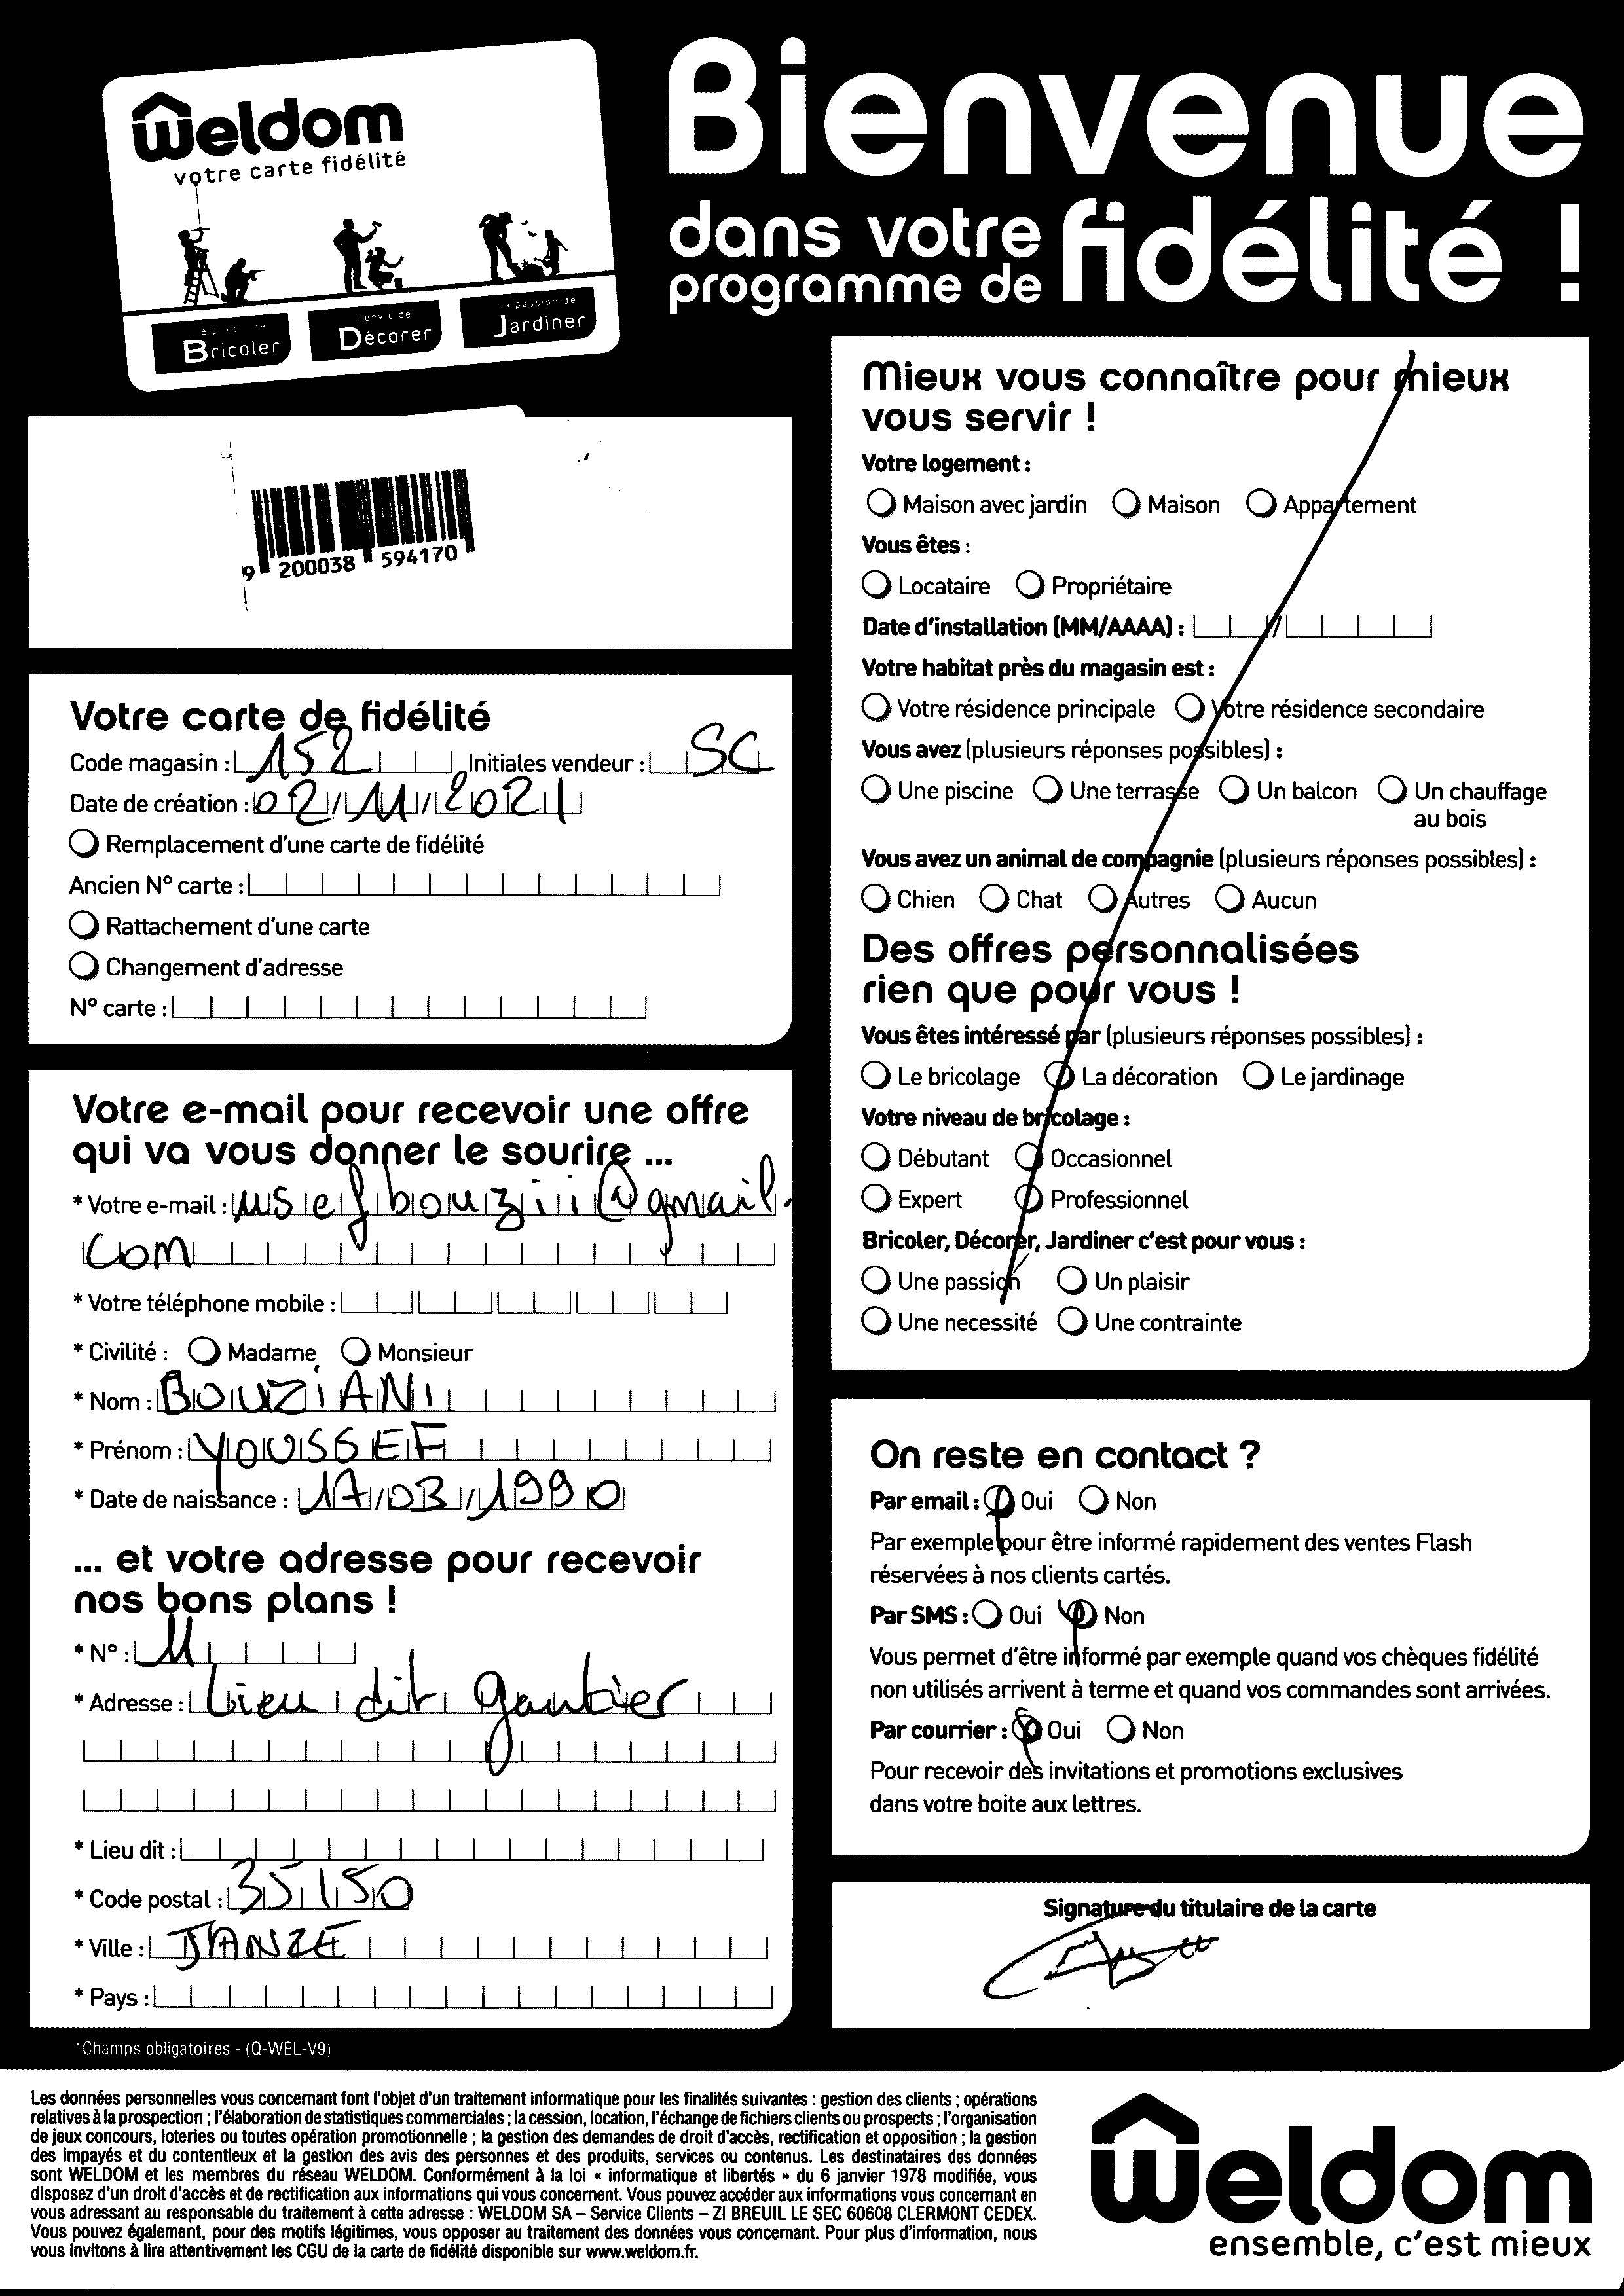 Weldom
votre carte fidélité
Bricoler
l'envie de
Décorer
la passion de
Jardiner
Bienvenue
dans votre
programme de fidélité !
9 200038 594170
Votre carte de fidélité
Code magasin : 152 Initiales vendeur : SC
Date de création : 02/11/2021
Remplacement d'une carte de fidélité
Ancien N° carte :
Rattachement d'une carte
Changement d'adresse
N° carte :
Votre e-mail pour recevoir une offre
qui va vous donner le sourire ...
* Votre e-mail : usefbouziii@gmail.
com
* Votre téléphone mobile :
* Civilité : Madame Monsieur
* Nom : BOUZIANI
* Prénom : YOUSSEF
* Date de naissance : 17/03/1990
... et votre adresse pour recevoir
nos bons plans !
* N° : 11
* Adresse : Lieu dit gautier
* Lieu dit :
* Code postal : 35150
* Ville : JANZÉ
* Pays :
*Champs obligatoires - (Q-WEL-V9)
Mieux vous connaître pour mieux
vous servir !
Votre logement :
Maison avec jardin Maison Appartement
Vous êtes :
Locataire Propriétaire
Date d'installation (MM/AAAA) : /
Votre habitat près du magasin est :
Votre résidence principale Votre résidence secondaire
Vous avez (plusieurs réponses possibles) :
Une piscine Une terrasse Un balcon Un chauffage
au bois
Vous avez un animal de compagnie (plusieurs réponses possibles) :
Chien Chat Autres Aucun
Des offres personnalisées
rien que pour vous !
Vous êtes intéressé par (plusieurs réponses possibles) :
Le bricolage La décoration Le jardinage
Votre niveau de bricolage :
Débutant Occasionnel
Expert Professionnel
Bricoler, Décorer, Jardiner c'est pour vous :
Une passion Un plaisir
Une necessité Une contrainte
On reste en contact ?
Par email : Oui Non
Par exemple pour être informé rapidement des ventes Flash
réservées à nos clients cartés.
Par SMS : Oui Non
Vous permet d'être informé par exemple quand vos chèques fidélité
non utilisés arrivent à terme et quand vos commandes sont arrivées.
Par courrier : Oui Non
Pour recevoir des invitations et promotions exclusives
dans votre boite aux lettres.
Signature du titulaire de la carte
Les données personnelles vous concernant font l'objet d'un traitement informatique pour les finalités suivantes : gestion des clients ; opérations
relatives à la prospection ; l'élaboration de statistiques commerciales ; la cession, location, l'échange de fichiers clients ou prospects ; l'organisation
de jeux concours, loteries ou toutes opération promotionnelle ; la gestion des demandes de droit d'accès, rectification et opposition ; la gestion
des impayés et du contentieux et la gestion des avis des personnes et des produits, services ou contenus. Les destinataires des données
sont WELDOM et les membres du réseau WELDOM. Conformément à la loi « informatique et libertés » du 6 janvier 1978 modifiée, vous
disposez d'un droit d'accès et de rectification aux informations qui vous concernent. Vous pouvez accéder aux informations vous concernant en
vous adressant au responsable du traitement à cette adresse : WELDOM SA – Service Clients – ZI BREUIL LE SEC 60608 CLERMONT CEDEX.
Vous pouvez également, pour des motifs légitimes, vous opposer au traitement des données vous concernant. Pour plus d'information, nous
vous invitons à lire attentivement les CGU de la carte de fidélité disponible sur www.weldom.fr.
Weldom
ensemble, c'est mieux